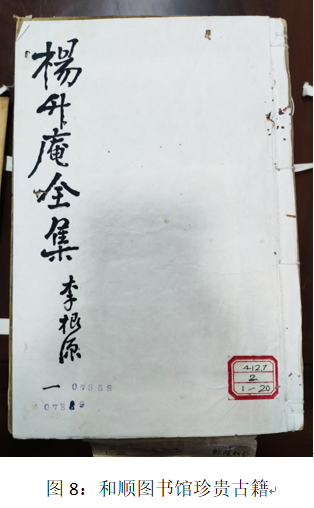 楊升庵全集
李根源
一
07888
07889
4127
2
1—20
图 8：和顺图书馆珍贵古籍